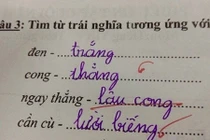 âu 3: Tìm từ trái nghĩa tương ứng với
đen - trắng
cong - thẳng
ngay thẳng - lầu cong
cần cù - lười biếng